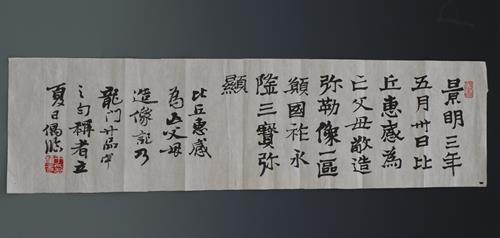 景明三年
五月卅日比
丘惠感為
亡父母敬造
弥勒像一區
願國祚永
隆三寶弥
顯
比丘惠感
為亡父母
造像記乃
龍门廿品中
之
夏日偶臨